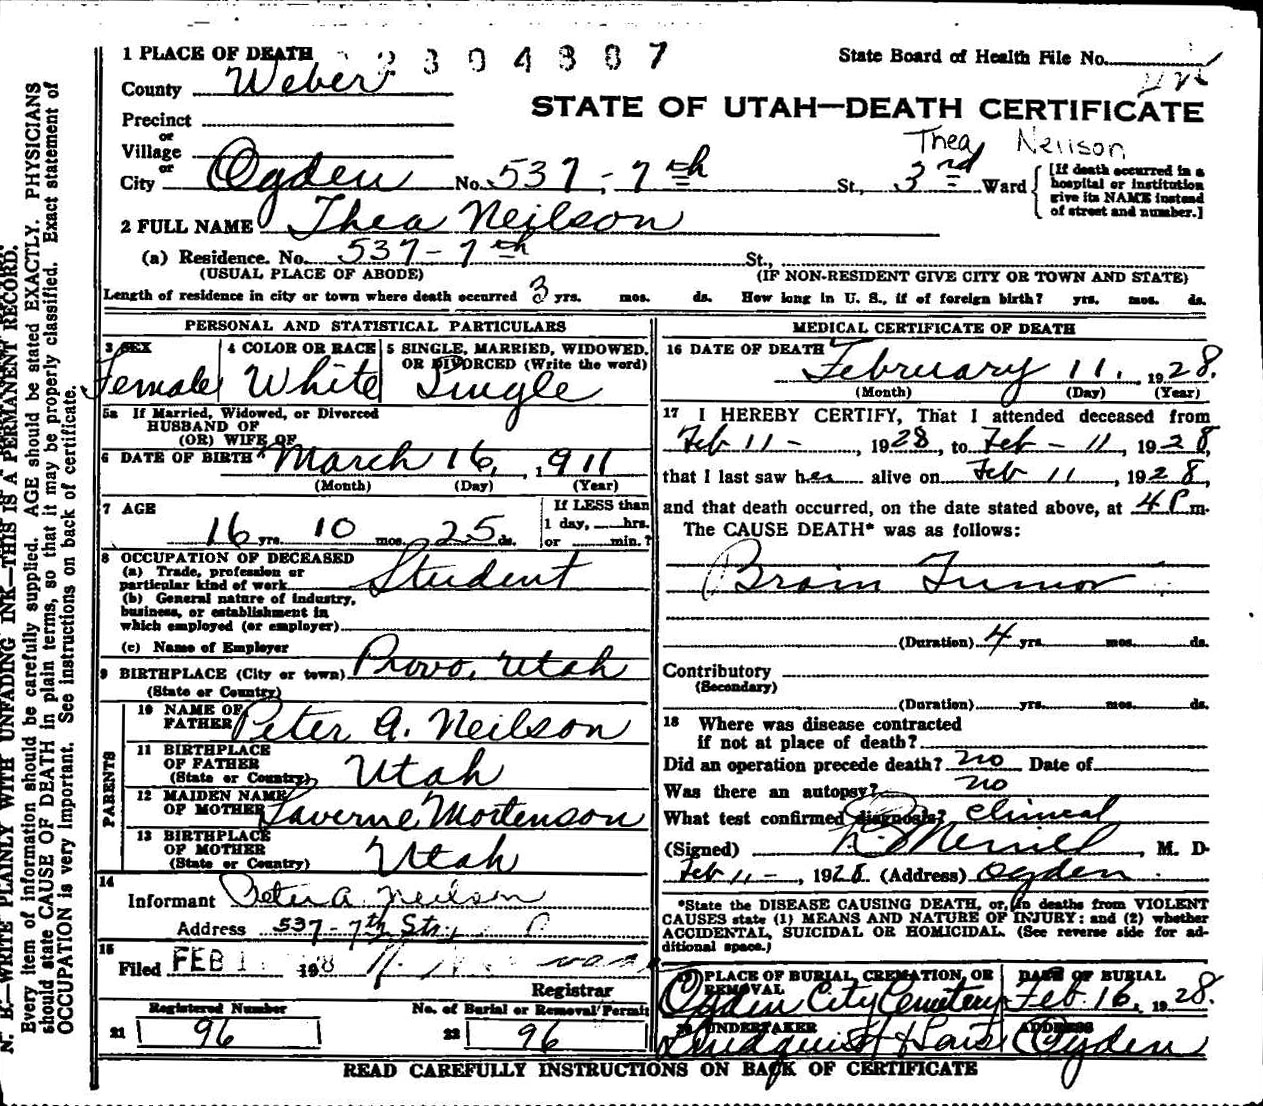 1 PLACE OF DEATH 2304387
State Board of Health File No.
County Weber
STATE OF UTAH—DEATH CERTIFICATE
Precinct
or
Village
Thea Neilson
or
City Ogden No. 537 - 7th St., 3rd Ward
[If death occurred in a
hospital or institution
give its NAME instead
of street and number.]
2 FULL NAME Thea Neilson
(a) Residence. No. 537 - 7th St.,
(USUAL PLACE OF ABODE) (IF NON-RESIDENT GIVE CITY OR TOWN AND STATE)
Length of residence in city or town where death occurred 3 yrs. mos. ds. How long in U. S., if of foreign birth? yrs. mos. ds.
PERSONAL AND STATISTICAL PARTICULARS
3 SEX 4 COLOR OR RACE 5 SINGLE, MARRIED, WIDOWED,
OR DIVORCED (Write the word)
Female White Single
5a If Married, Widowed, or Divorced
HUSBAND OF
(OR) WIFE OF
6 DATE OF BIRTH March 16, 1911
(Month) (Day) (Year)
7 AGE
16 yrs. 10 mos. 25 ds.
If LESS than
1 day, hrs.
or min.?
8 OCCUPATION OF DECEASED
(a) Trade, profession or
particular kind of work Student
(b) General nature of industry,
business, or establishment in
which employed (or employer)
(c) Name of Employer
9 BIRTHPLACE (City or town) Provo, Utah
(State or Country)
PARENTS
10 NAME OF
FATHER Peter A. Neilson
11 BIRTHPLACE
OF FATHER
(State or Country) Utah
12 MAIDEN NAME
OF MOTHER Laverne Mortenson
13 BIRTHPLACE
OF MOTHER
(State or Country) Utah
14
Informant Peter A. Neilson
Address 537 - 7th St.,
15
Filed FEB 1 1928
Registrar
Registered Number
21 96
No. of Burial or Removal Permit
22 96
MEDICAL CERTIFICATE OF DEATH
16 DATE OF DEATH
February 11, 1928.
(Month) (Day) (Year)
17 I HEREBY CERTIFY, That I attended deceased from
Feb 11 -, 1928, to Feb - 11, 1928,
that I last saw her alive on Feb 11, 1928,
and that death occurred, on the date stated above, at 4 P m.
The CAUSE DEATH* was as follows:
Brain Tumor
(Duration) 4 yrs. mos. ds.
Contributory
(Secondary)
(Duration) yrs. mos. ds.
18 Where was disease contracted
if not at place of death?
Did an operation precede death? no Date of
Was there an autopsy? no
What test confirmed diagnosis? Clinical
(Signed) Merrill, M. D.
Feb 11 -, 1928 (Address) Ogden.
*State the DISEASE CAUSING DEATH, or, in deaths from VIOLENT
CAUSES state (1) MEANS AND NATURE OF INJURY; and (2) whether
ACCIDENTAL, SUICIDAL OR HOMICIDAL. (See reverse side for ad-
ditional space.)
19 PLACE OF BURIAL, CREMATION, OR
REMOVAL
DATE OF BURIAL
Ogden City Cemetery Feb. 16, 1928.
20 UNDERTAKER ADDRESS
Lindquist & Sons Ogden
READ CAREFULLY INSTRUCTIONS ON BACK OF CERTIFICATE
N. B.—WRITE PLAINLY WITH UNFADING INK—THIS IS A PERMANENT RECORD.
Every item of information should be carefully supplied. AGE should be stated EXACTLY. PHYSICIANS
should state CAUSE OF DEATH in plain terms, so that it may be properly classified. Exact statement of
OCCUPATION is very important. See instructions on back of certificate.